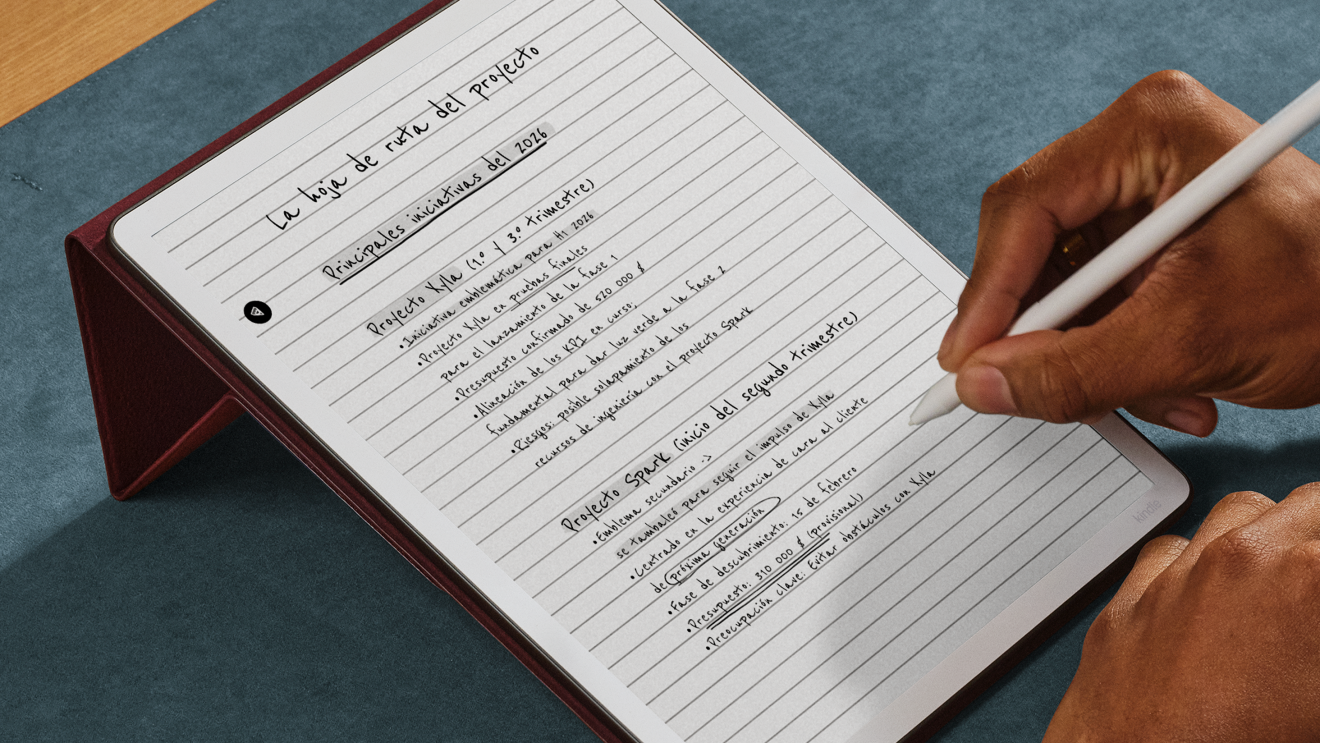 La hoja de ruta del proyecto
Principales iniciativas del 2026
Proyecto Kyla (1.º y 3.º trimestre)
•Iniciativa emblemática para H1 2026
•Proyecto Kyla en pruebas finales
para el lanzamiento de la fase 1
•Presupuesto confirmado de 520 000 $
•Alineación de los KPI en curso:
fundamental para dar luz verde a la fase 2
•Riesgos: posible solapamiento de los
recursos de ingeniería con el proyecto Spark
Proyecto Spark (inicio del segundo trimestre)
•Emblema secundario ->
se tambaleó para seguir el impulso de Kyla
•Centrado en la experiencia de cara al cliente
de próxima generación
•Fase de descubrimiento: 15 de febrero
•Presupuesto: 310 000 $ (provisional)
•Preocupación clave: Evitar obstáculos con Kyla
kindle